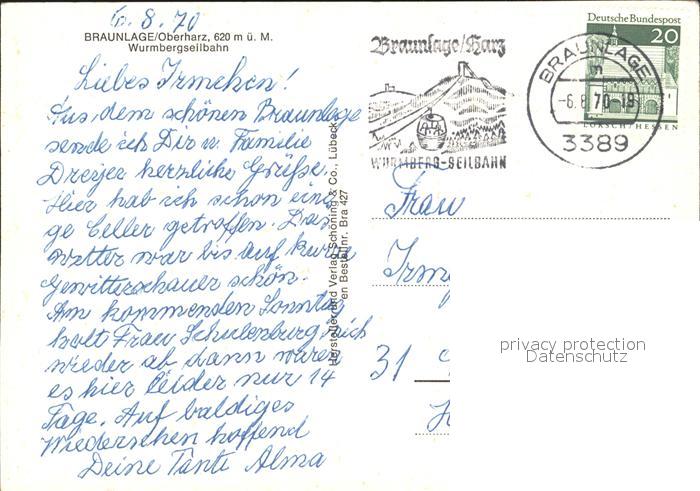 6.8.70
BRAUNLAGE/Oberharz, 620 m ü. M.
Wurmbergseilbahn
Liebes Irmchen!
Aus dem schönen Braunlage
sende ich Dir u. Familie
Dreyer herzliche Grüße.
Hier hab ich schon eini-
ge Celler getroffen. Das
Wetter war bis auf kurze
Gewitterschauer schön.
Am kommenden Sonntag
holt Frau Schulenburg mich
wieder ab dann waren
es hier leider nur 14
Tage. Auf baldiges
Wiedersehen hoffend
Deine Tante Alma
Hersteller und Verlag Schöning & Co., Lübeck
en Bestellnr. Bra 427
Braunlage/Harz
WURMBERG-SEILBAHN
BRAUNLAGE
-6.8.70-18
3389
Deutsche Bundespost
20
LORSCH/HESSEN
Frau
Irmg
31
privacy protection
Datenschutz